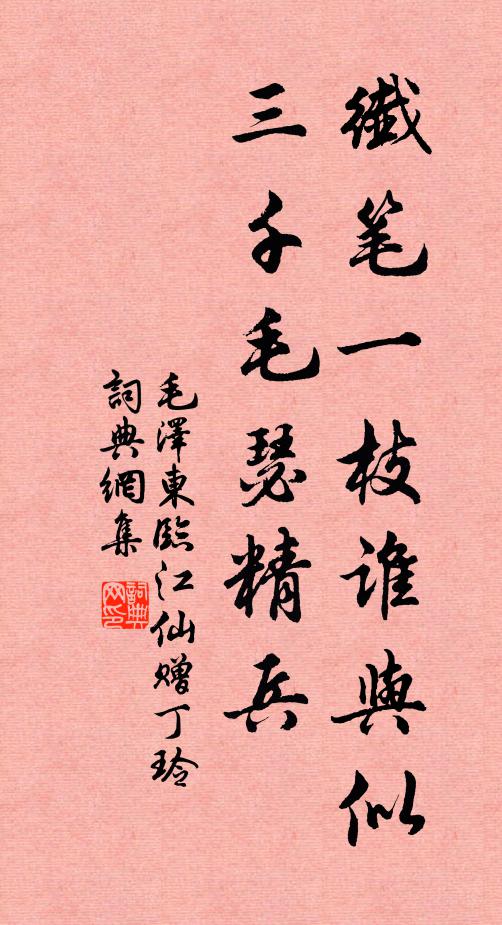 纖笔一枝谁與似
三千毛瑟精兵
毛澤東臨江仙赠丁玲
詞典網集
詞典网印